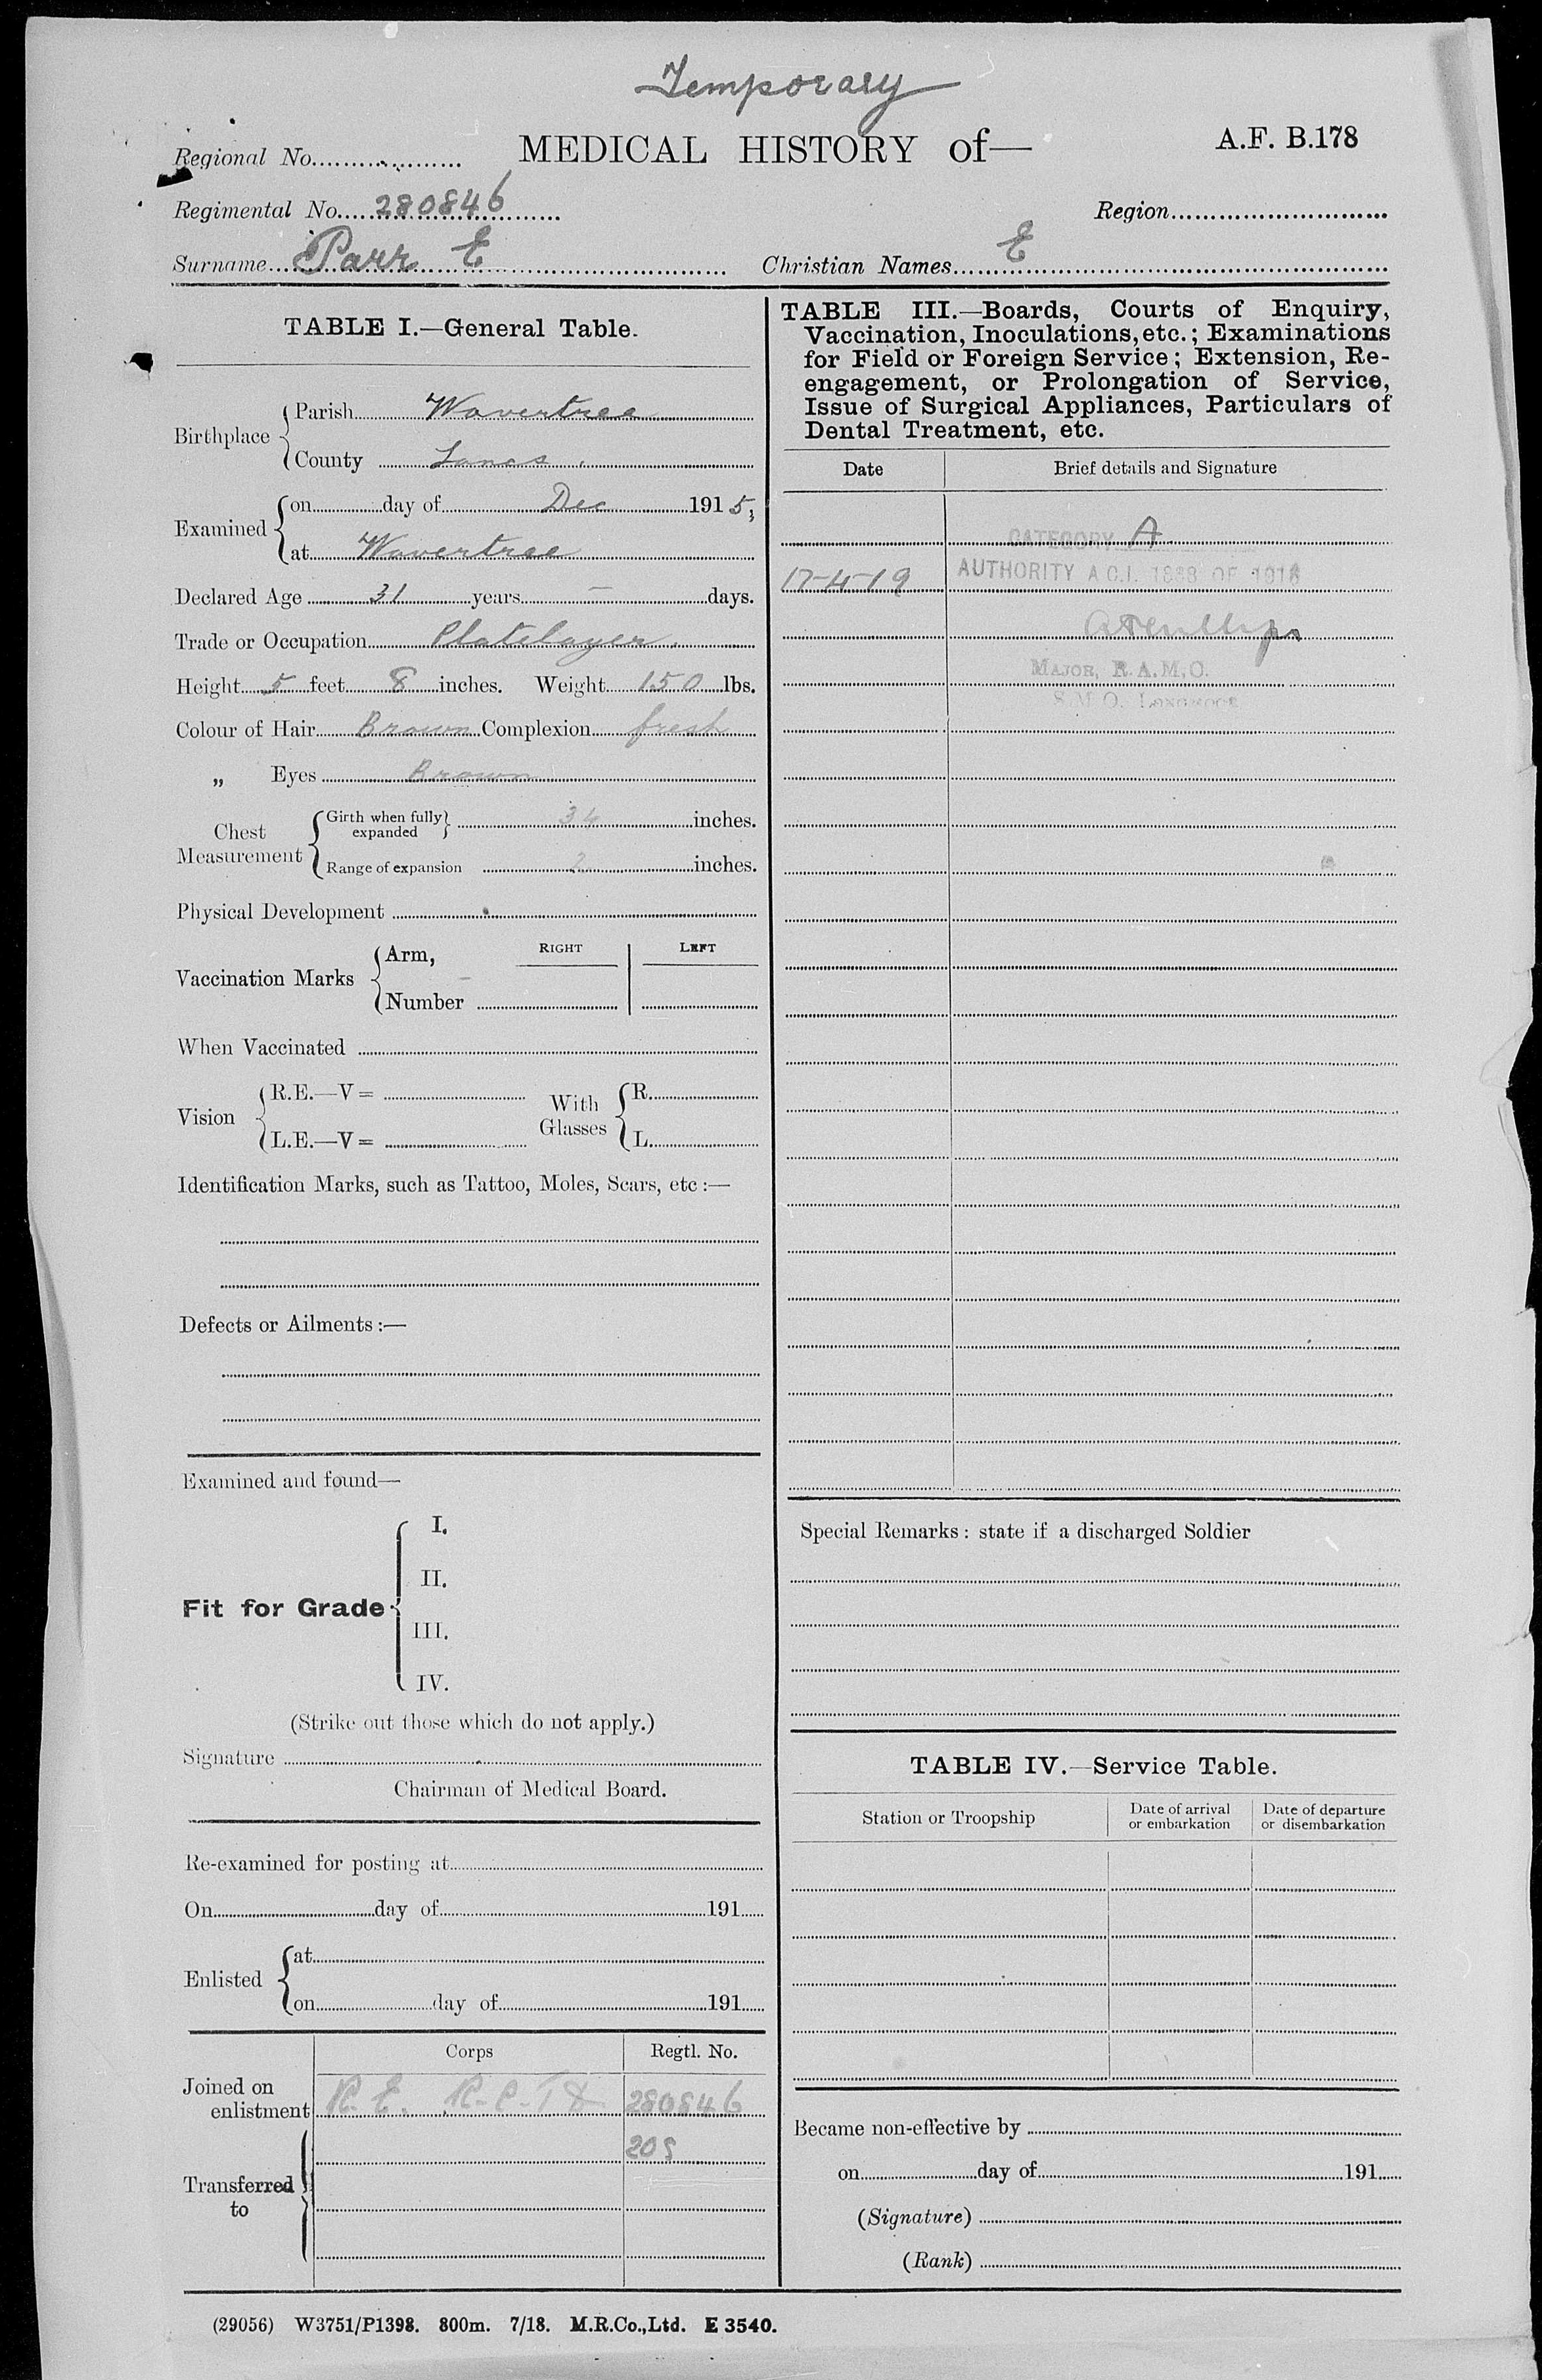 Temporary
MEDICAL HISTORY of—
A.F. B.178
Regional No.
Regimental No. 280846
Region
Surname Parr E
Christian Names E
TABLE I.—General Table.
Birthplace
Parish Wavertree
County Lancs.
Examined
on day of Dec 1915;
at Wavertree
Declared Age 31 years — days.
Trade or Occupation Platelayer.
Height 5 feet 8 inches. Weight 150 lbs.
Colour of Hair Brown Complexion fresh
„ Eyes Brown
Chest Measurement
Girth when fully expanded 34 inches.
Range of expansion 2 inches.
Physical Development
Vaccination Marks
Arm, RIGHT LEFT
Number
When Vaccinated
Vision
R.E.—V=
L.E.—V=
With Glasses
R.
L.
Identification Marks, such as Tattoo, Moles, Scars, etc :—
Defects or Ailments :—
Examined and found—
Fit for Grade
I.
II.
III.
IV.
(Strike out those which do not apply.)
Signature
Chairman of Medical Board.
Re-examined for posting at
On day of 191
Enlisted
at
on day of 191
Corps Regtl. No.
Joined on enlistment R.E. 280846
205
Transferred to
TABLE III.—Boards, Courts of Enquiry,
Vaccination, Inoculations, etc. ; Examinations
for Field or Foreign Service ; Extension, Re-
engagement, or Prolongation of Service,
Issue of Surgical Appliances, Particulars of
Dental Treatment, etc.
Date Brief details and Signature
CATEGORY A
17-4-19 AUTHORITY A C.I. OF 1916
MAJOR, R.A.M.C.
S.M.O. LONGMOOR
Special Remarks : state if a discharged Soldier
TABLE IV.—Service Table.
Station or Troopship
Date of arrival or embarkation
Date of departure or disembarkation
Became non-effective by
on day of 191
(Signature)
(Rank)
(29056) W3751/P1398. 800m. 7/18. M.R.Co.,Ltd. E 3540.